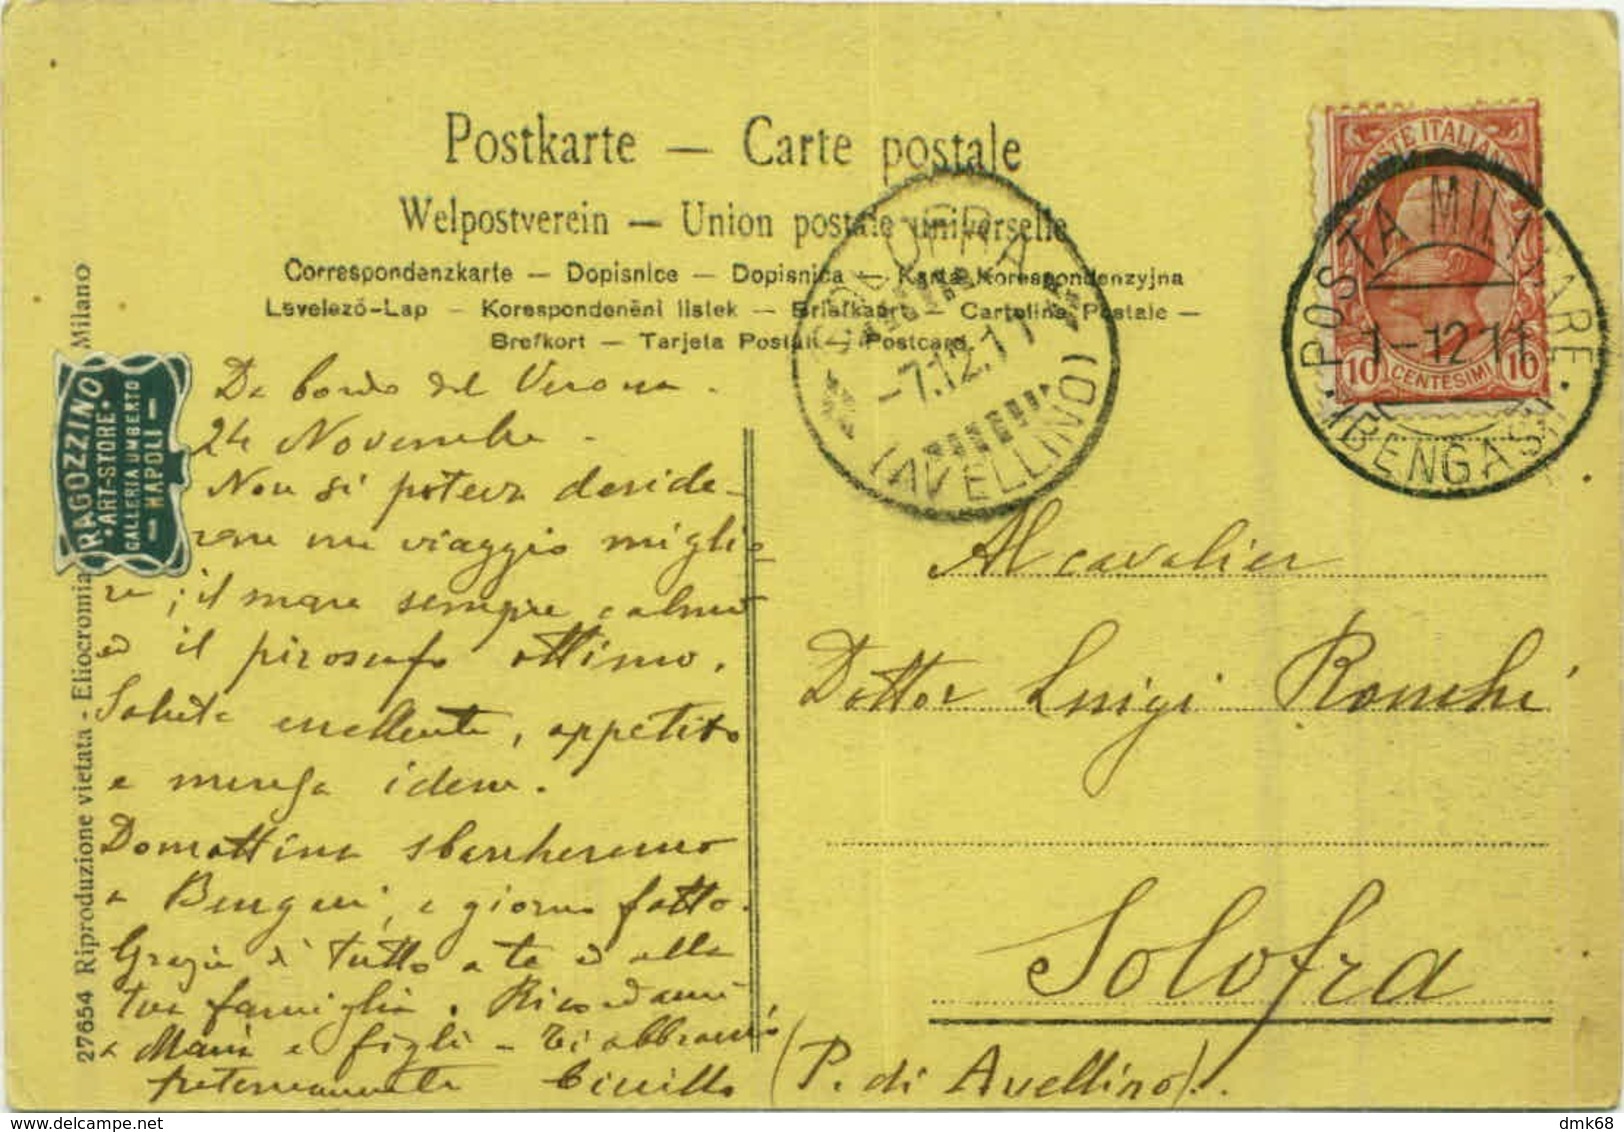 Postkarte — Carte postale
Welpostverein — Union postale universelle
Correspondenzkarte — Dopisnice — Dopisnica — Karta Korespondenzyjna
Levelező-Lap — Korespondenéni listek — Briefkaart — Cartolina Postale —
Brefkort — Tarjeta Postal — Postcard.
POSTE ITALIANE
10 CENTESIMI 10
POSTA MILITARE
1-12 11
BENGASI
SOLOFRA
-7.12.11
(AVELLINO)
RAGOZZINO
·ART-STORE·
GALLERIA UMBERTO
— NAPOLI —
27654 Riproduzione vietata - Eliocromia Milano
Da bordo del Verona -
24 Novembre -
Non si poteva deside-
rare un viaggio miglio
re; il mare sempre calmo
ed il piroscafo ottimo.
Salute eccellente, appetito
e mensa idem.
Domattina sbarcheremo
a Bengasi, a giorno fatto.
Grazie di tutto a te ed alla
tua famiglia. Ricordami
a Maria e figli - Ti abbraccio
fraternamente Cirillo
Al cavalier
Dottor Luigi Ronchi
Solofra
(P. di Avellino).
dmk68